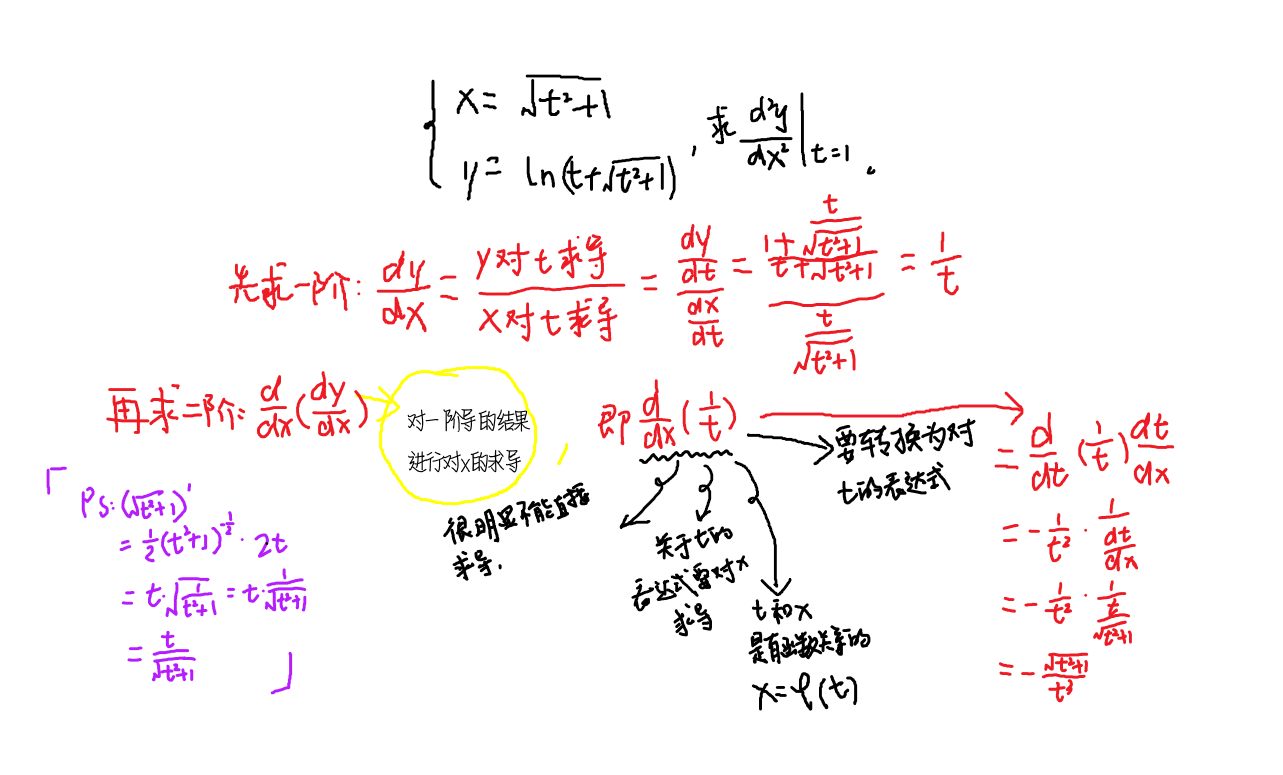 { x = √(t²+1)
y = ln(t+√(t²+1)) , 求 d²y/dx² | t=1 。
先求一阶: dy/dx = y对t求导/x对t求导 = (dy/dt)/(dx/dt) = ((1+t/√(t²+1))/(t+√(t²+1)))/(t/√(t²+1)) = 1/t
再求二阶: d/dx(dy/dx)
对一阶导的结果
进行对x的求导
即 d/dx(1/t)
要转换为对
t的表达式
= d/dt(1/t) dt/dx
= -1/t² · 1/(dt/dx)
= -1/t² · 1/(t/√(t²+1))
= -√(t²+1)/t³
很明显不能直接
求导.
关于t的
表达式要对x
求导
t和x
是有函数关系的
x=φ(t)
「 Ps: (√(t²+1))'
= 1/2(t²+1)^(-1/2) · 2t
= t·√(1/(t²+1)) = t·1/√(t²+1)
= t/√(t²+1) 」